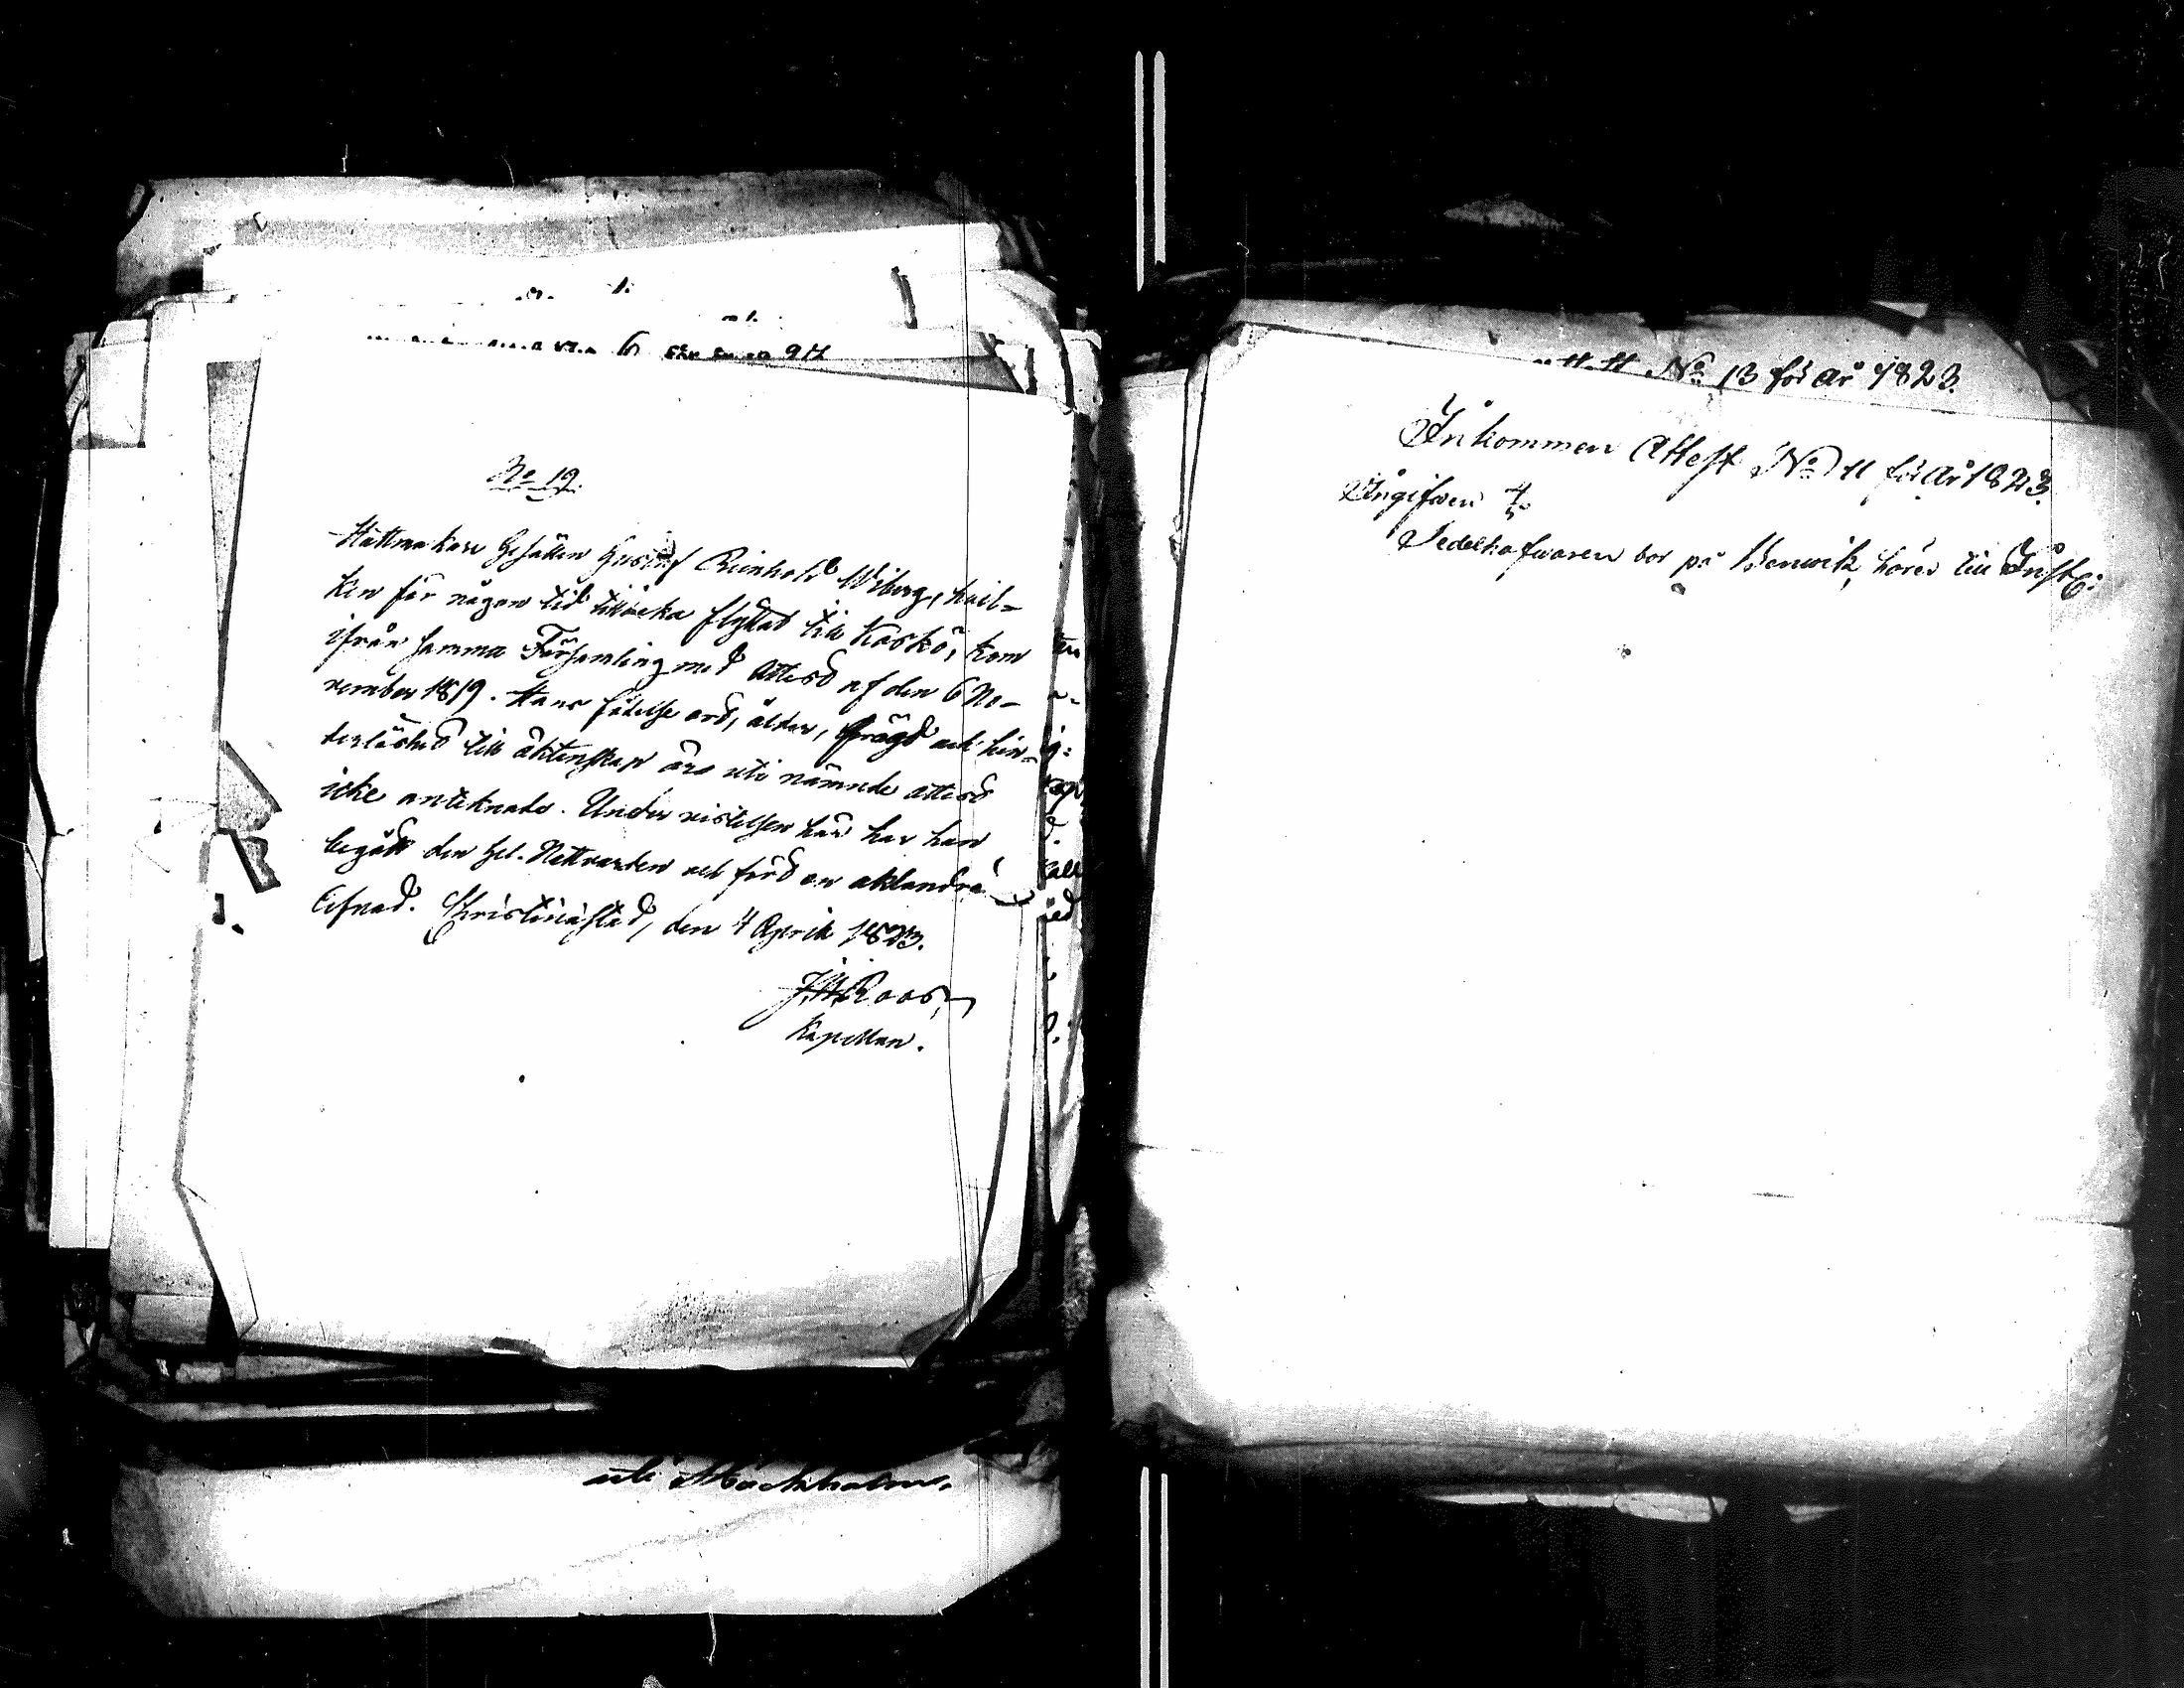 No 19.
Hattmakare Gesällen Gustaf Reinhold Wiberg, hvil-
ken för någon tid tillbaka flyttat till Kaskö, kom
ifrån samma Församling med attest af den 6 No-
vember 1819. Hans födelse ort, ålder, frägd och hin-
derlöshet till äktenskap äro uti nämnde attest
icke anteknade. Under vistelsen här har han
begått den Hel. Nattvarden och fört en oklandrad
lefnad. Christinæstad, den 4 April 1823.
Roos,
Kapellan.
uti Stockholm.
No 13 för år 1823.
Inkommen Attest No 11 för år 1823.
Ingifven
Sedelhafvaren bor på hörer till